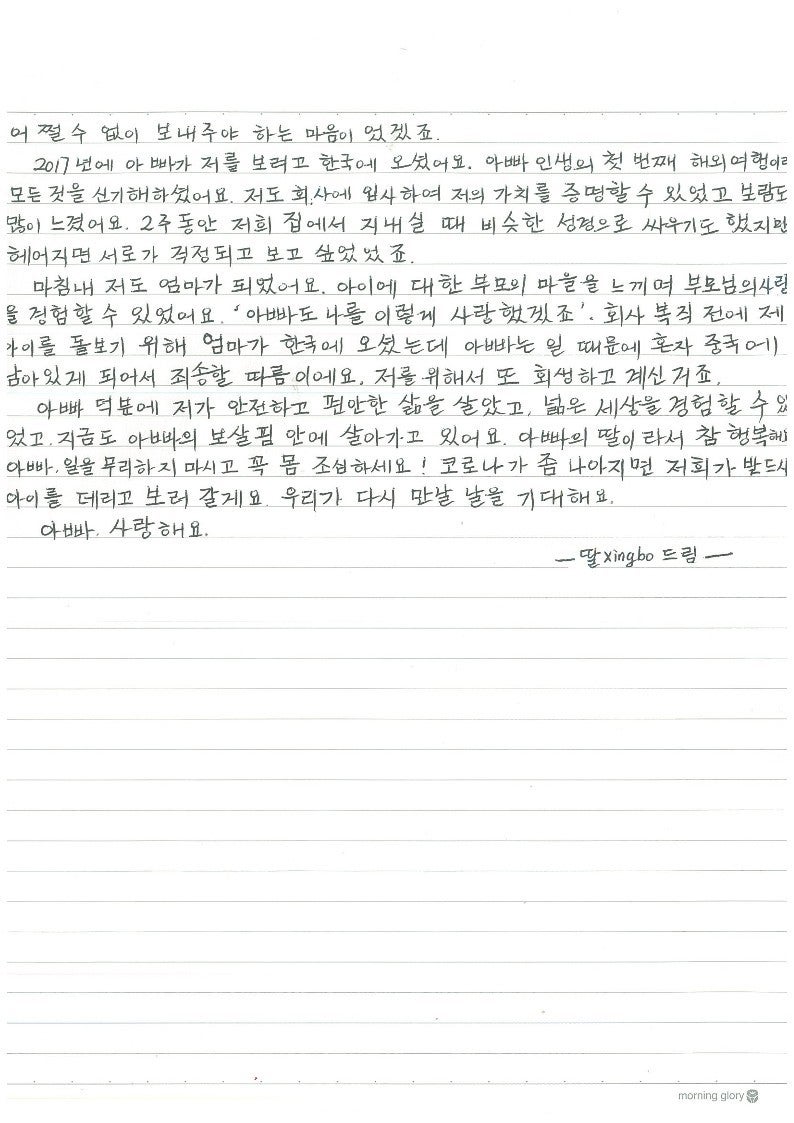 어쩔 수 없이 보내주야 하는 마음이 었겠죠.
2017년에 아빠가 저를 보려고 한국에 오셨어요. 아빠 인생의 첫 번째 해외여행이라
모든 것을 신기해하셨어요. 저도 회사에 입사하여 저의 가치를 증명할 수 있었고 보람도
많이 느꼈어요. 2주 동안 저희 집에서 지내실 때 비슷한 성격으로 싸우기도 했지만
헤어지면 서로가 걱정되고 보고 싶었었죠.
마침내 저도 엄마가 되었어요. 아이에 대한 부모의 마을을 느끼며 부모님의 사랑
을 경험할 수 있었어요. '아빠도 나를 이렇게 사랑했겠죠'. 회사 복직 전에 제
아이를 돌보기 위해 엄마가 한국에 오셨는데 아빠는 일 때문에 혼자 중국에
남아있게 되어서 죄송할 따름이에요. 저를 위해서 또 희생하고 계신거죠.
아빠 덕분에 저가 안전하고 편안한 삶을 살았고, 넓은 세상을 경험할 수 있
었고. 지금도 아빠의 보살핌 안에 살아가고 있어요. 아빠의 딸이라서 참 행복해요
아빠. 일을 무리하지 마시고 꼭 몸 조심하세요! 코로나가 좀 나아지면 저희가 반드시
아이를 데리고 보러 갈게요. 우리가 다시 만날 날을 기대해요.
아빠. 사랑해요.
— 딸 xingbo 드림 —
morning glory